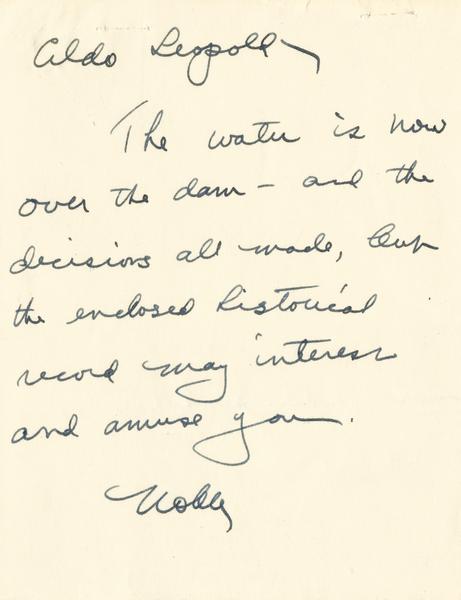 Aldo Leopold
The water is now
over the dam – and the
decisions all made, but
the enclosed historical
record may interest
and amuse you.
Noble